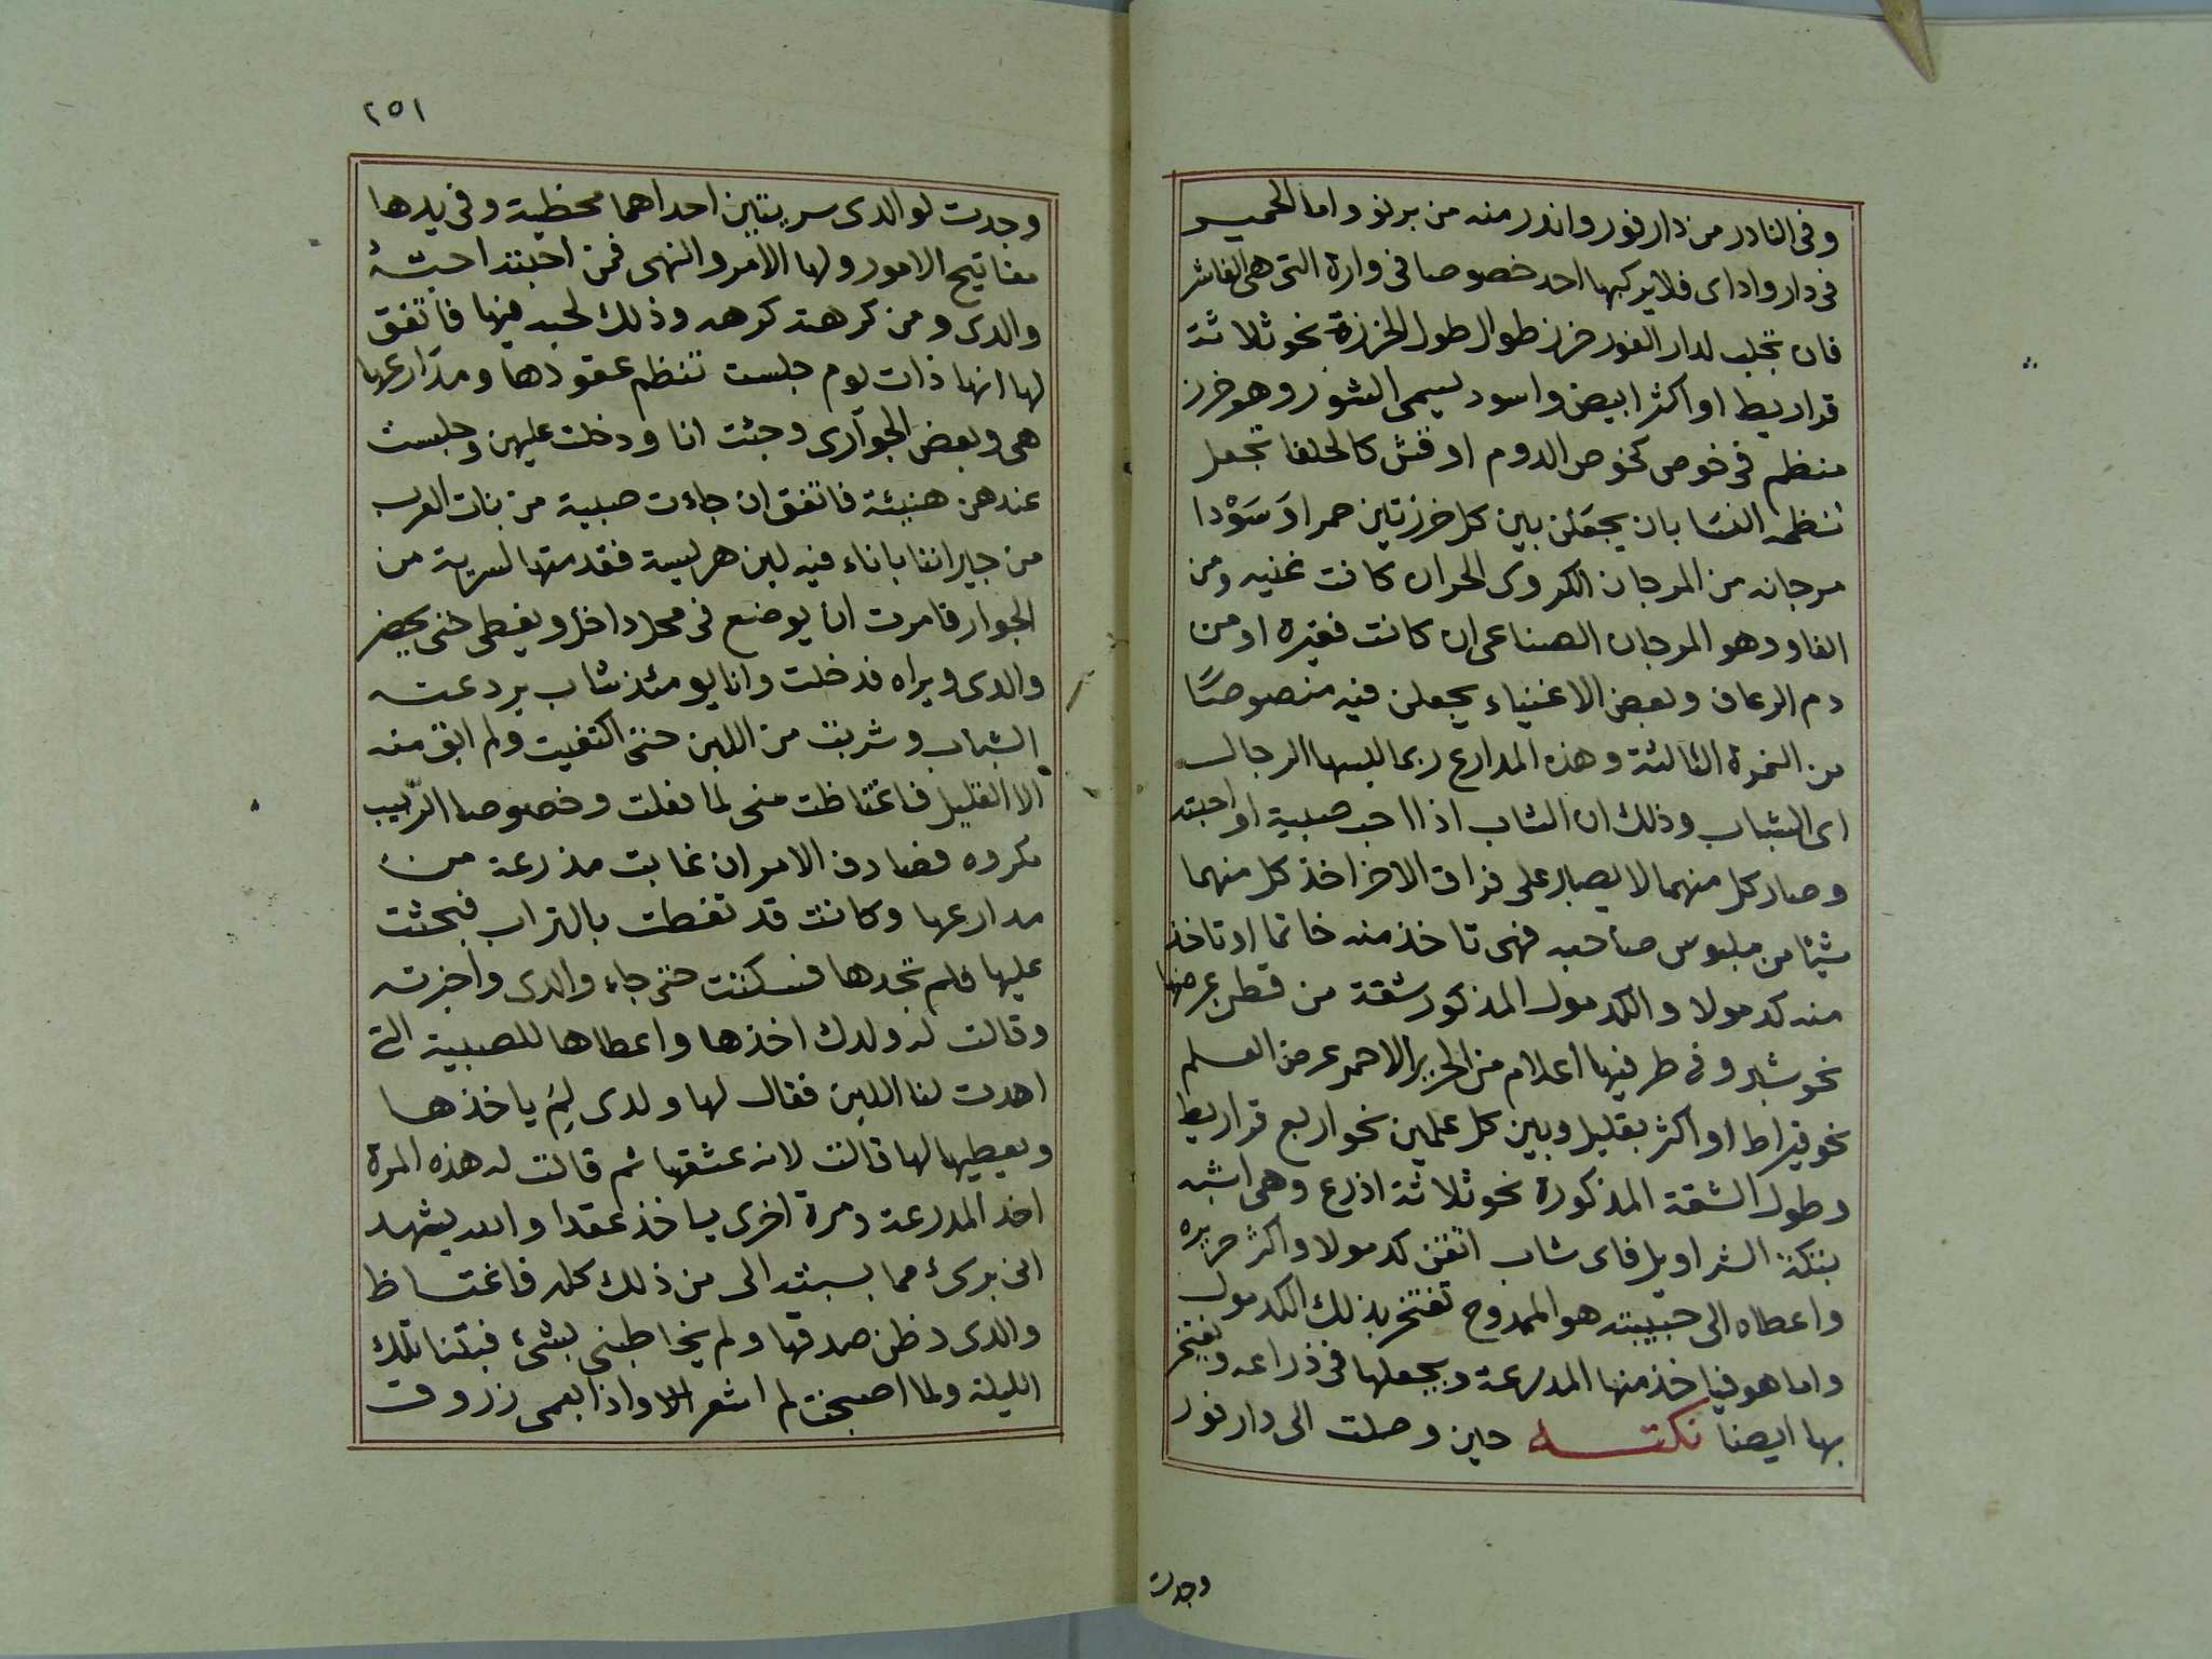 وفى النادر من دارفور واندر منه من برنو واما الحمير
فى دار واداى فلا يركبها احد خصوصا فى وارة التى هى الفاشر
فان تجلب لدار الفور خرز طوال طول الخرزة نحو ثلاثة
قراريط او اكثر ابيض واسود يسمى الشور وهو خرز
منظم فى خوص كخوص الدوم او قش كالحلفا تجعل
تنظمه النسا بان يجعلن بين كل خرزتين حمرا او سودا
مرجانه من المرجان الكروى الحر ان كانت غنيه ومن
الفاو وهو المرجان الصناعى ان كانت فقيرة او من
دم الرعاف وبعض الاغنياء يجعلن فيه منصوصًا
من النمرة الثالثة وهذه المدارع ربما البسها الرجال
اى الشباب وذلك ان الشاب اذا احب صبية او احبته
وصار كل منهما لا يصبر على فراق الاخر اخذ كل منهما
شيئا من ملبوس صاحبه فهى تاخذ منه خاتما او تاخذ
منه كدمولا والكدمول المذكور شقة من قطن عرضها
نحو شبر وفى طرفيها اعلام من الحرير الاحمر عرض العلم
نحو قيراط او اكثر بقليل وبين كل علمين نحو اربع قراريط
وطول الشقة المذكورة نحو ثلاثة اذرع وهى اشبه
بتكة الشراويل فاى شاب اتقن كدمولا واكثر حريره
واعطاه الى حبيبته هو الممدوح تفتخر بذلك الكدمول
واما هو فياخذ منها المدرعة ويجعلها فى ذراعه ويفتخر
بها ايضا نكتة حين وصلت الى دارفور
وجدت
٢٥١
وجدت لوالدى سريتين احداهما محظية وفى يدها
مفاتيح الامور ولها الامر والنهى فمن احبته احبهُ
والدى ومن كرهته كرهه وذلك لحبه فيها فاتفق
لها انها ذات يوم جلست تنظم عقودها ومدارعها
هى وبعض الجوارى وجئت انا ودخلت عليهن وجلست
عندهن هنيئة فاتفق ان جاءت صبية من بنات العرب
من جيراننا باناء فيه لبن هريسة فقدمتها لسرية من
الجوار فامرت ان يوضع فى محل داخل ويغطى حتى يحضر
والدى ويراه فدخلت وانا يومئذ شاب بردعته
الشباب وشربت من اللبن حتى اكتفيت ولم ابق منه
الا القليل فاغتاظت منى لما فعلت وخصوصا الربيب
مكروه فصادف الامر ان غابت مذرعة من
مدارعها وكانت قد تغطت بالتراب فبحثت
عليها فلم تجدها فسكتت حتى جاء والدى واخبرته
وقالت له ولدك اخذها واعطاها للصبية التى
اهدت لنا اللبن فقال لها ولدى لِمَ ياخذها
ويعطيها لها قالت لانه عشقها ثم قالت له هذه المرة
اخذ المدرعة ومرة اخرى ياخذ عقدا والله يشهد
انى برئ مما بسبته الى من ذلك كله فاغتاظ
والدى وظن صدقها ولم يخاطبنى بشئ فبتنا تلك
الليلة ولما اصبحت لم اشعر الا واذا بعمى زروق